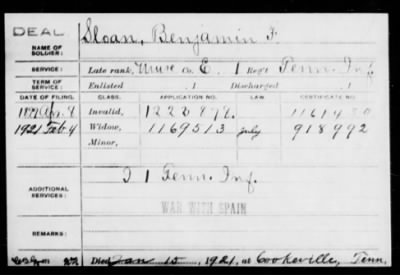 DEAL
NAME OF SOLDIER: Sloan, Benjamin F.
SERVICE: Late rank, Co. E, 1 Reg't Tenn. Inf.
TERM OF SERVICE: Enlisted , 1 Discharged , 1
DATE OF FILING. CLASS. APPLICATION NO. LAW. CERTIFICATE NO.
Invalid,
1921 Feb. 4 Widow, 1169513 918992
Minor,
ADDITIONAL SERVICES: 1 Tenn. Inf.
WAR WITH SPAIN
REMARKS:
Died Jan 15, 1921, at Cookeville, Tenn.